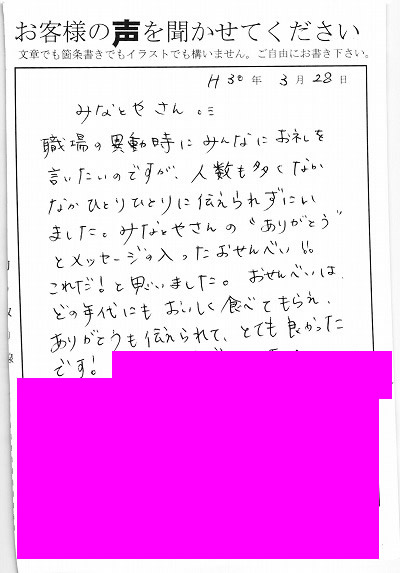 お客様の声を聞かせてください
文章でも箇条書きでもイラストでも構いません。ご自由にお書き下さい。
H30年 3月28日
みなとやさん へ
職場の異動時にみんなにお礼を
言いたいのですが、人数も多くなか
なかひとりひとりに伝えられずにい
ました。みなとやさんの〝ありがとう〟
とメッセージの入ったおせんべい!!
これだ!と思いました。おせんべいは、
どの年代にもおいしく食べてもらえ、
ありがとうも伝えられて、とても良かった
です!